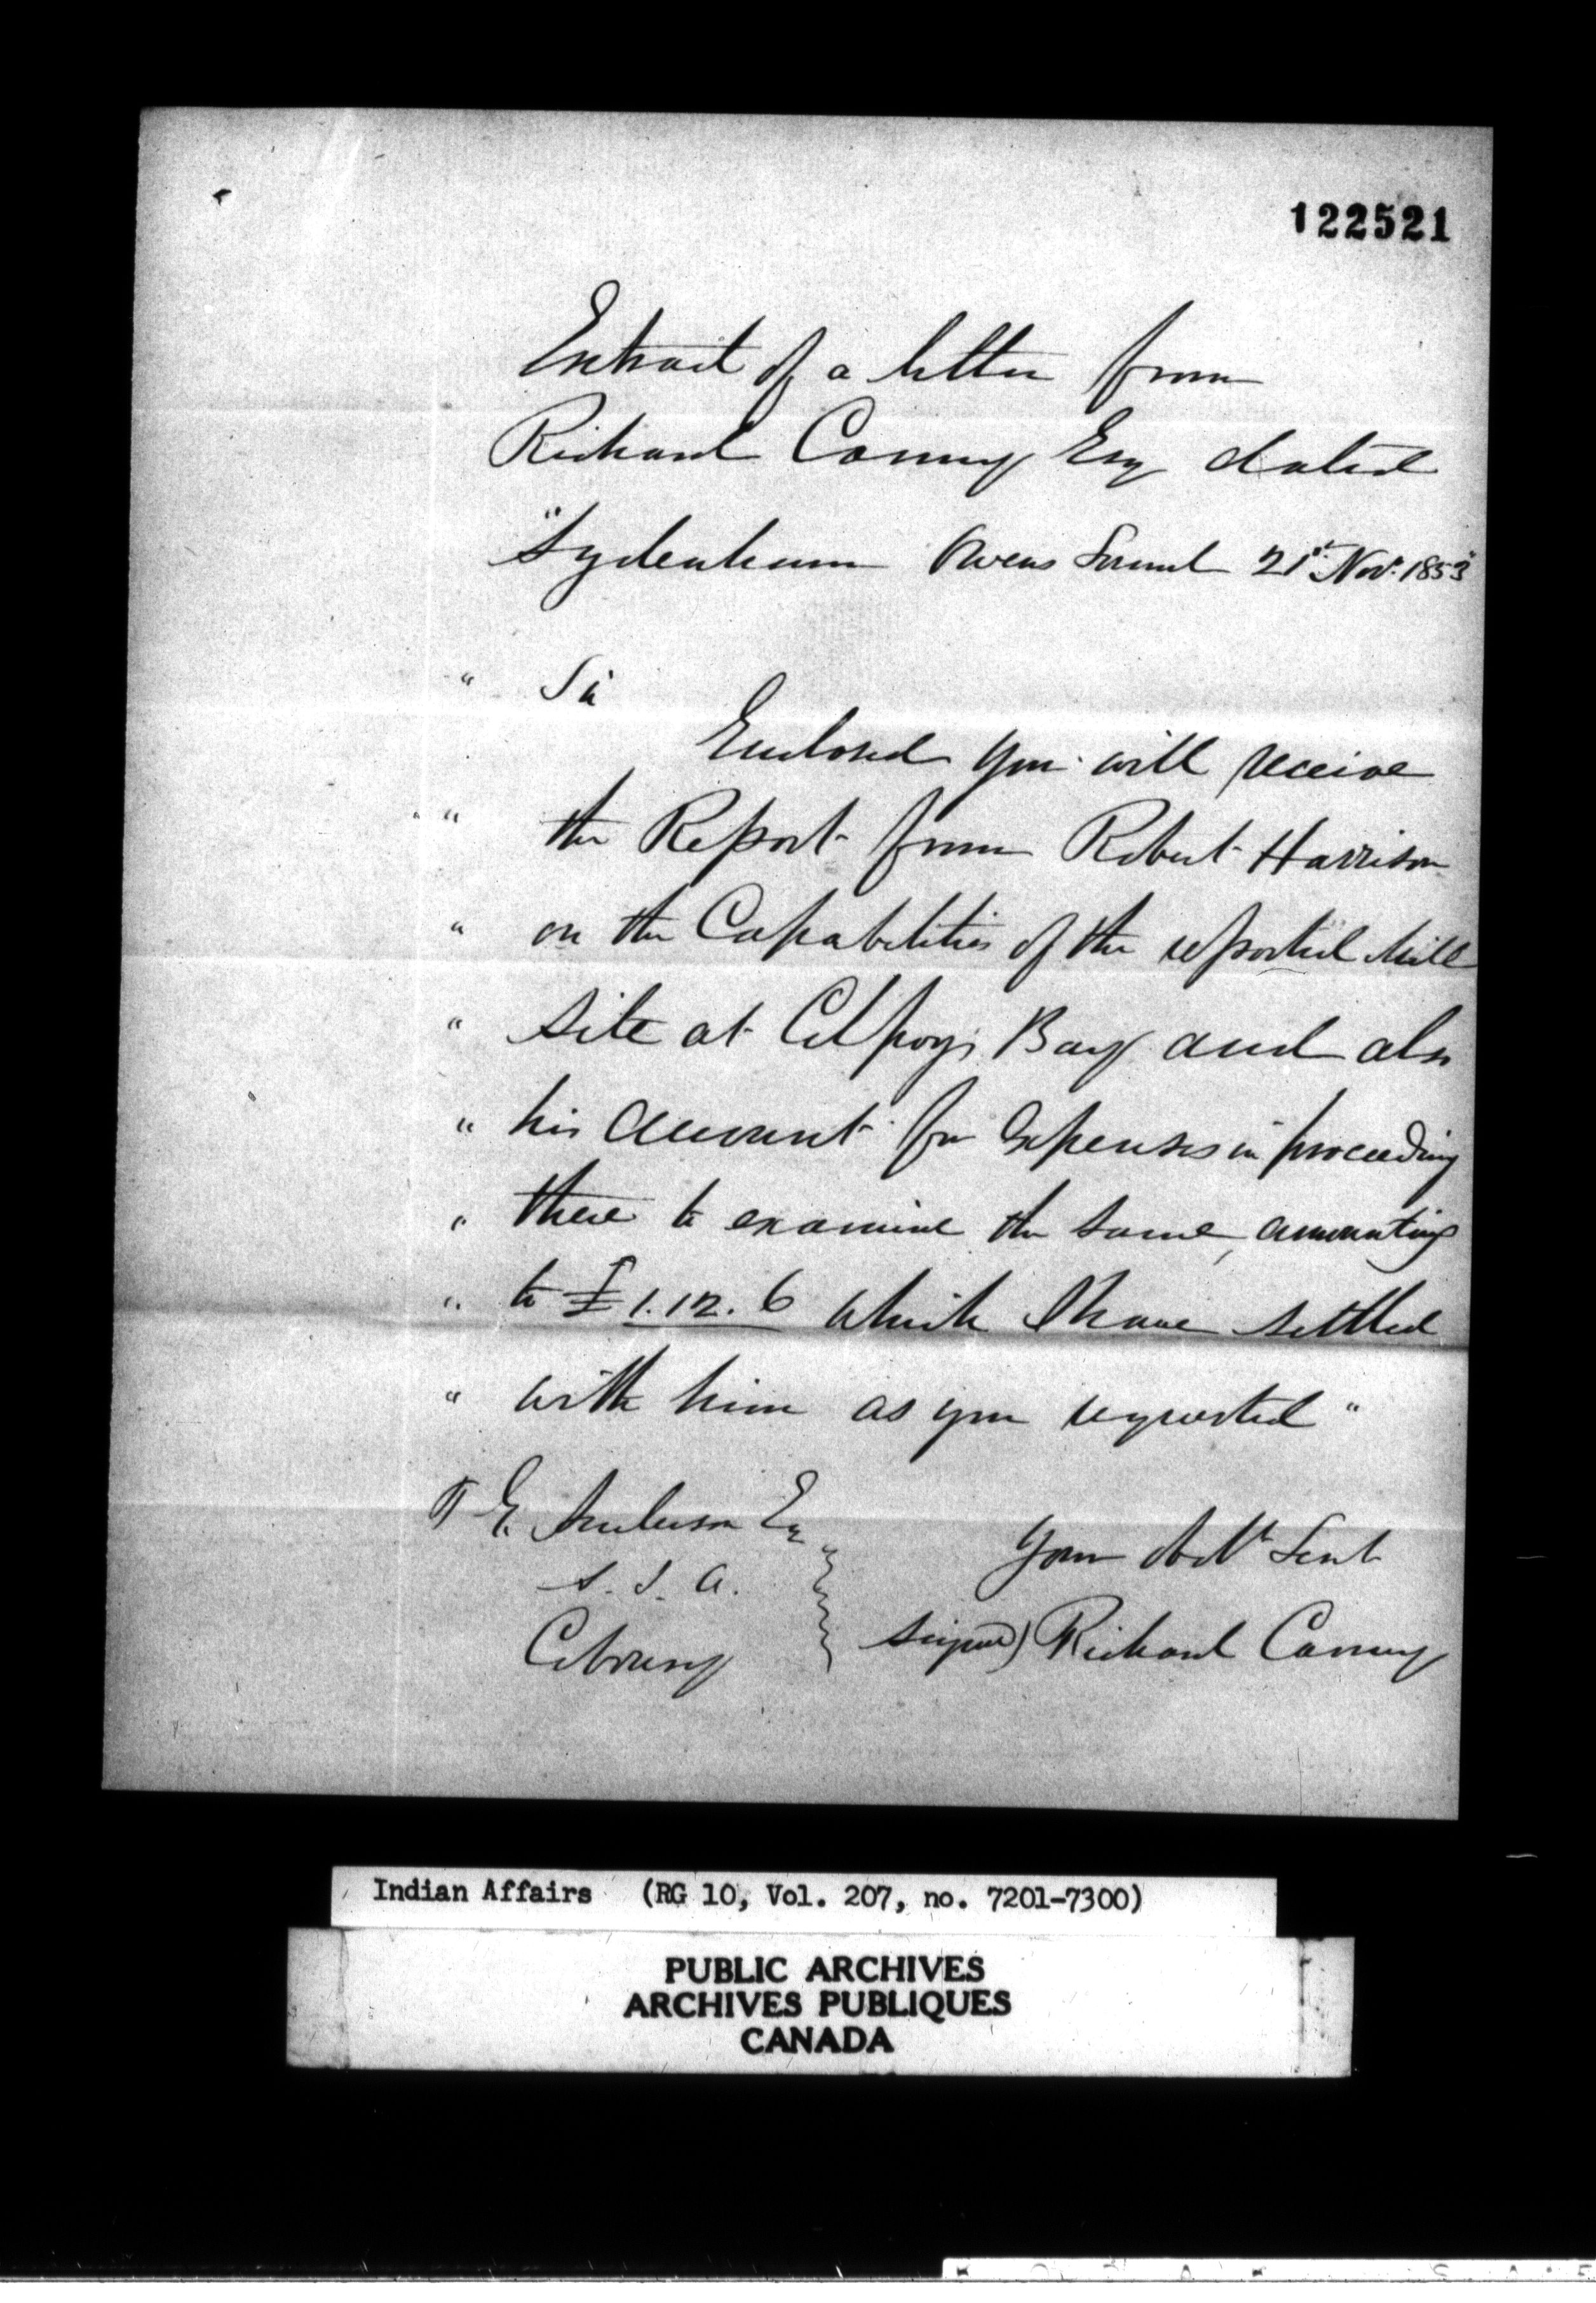 122521
Extract of a letter from
Richard Carney Esq dated
"Sydenham Owens Sound 21st Novr. 1853"
" Sir
Enclosed you will receive
" the Report from Robert Harrison
" on the Capabilities of the reported Mill
" site at Colpoys Bay and also
" his account for Expenses in proceeding
" there to examine the same, amounting
" to £1.12.6 which I have settled
" with him as you requested "
T G. Anderson Esq
S. I. A.
Cobourg
Your Obdt. Servt
Signed) Richard Carney
Indian Affairs (RG 10, Vol. 207, no. 7201-7300)
PUBLIC ARCHIVES
ARCHIVES PUBLIQUES
CANADA